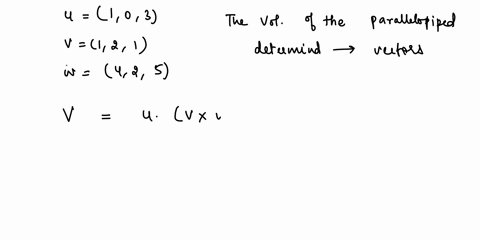 u = (1, 0, 3)
v = (1, 2, 1)
w = (4, 2, 5)
The vol. of the parallelopiped
determind → vectors
V = u. (v x